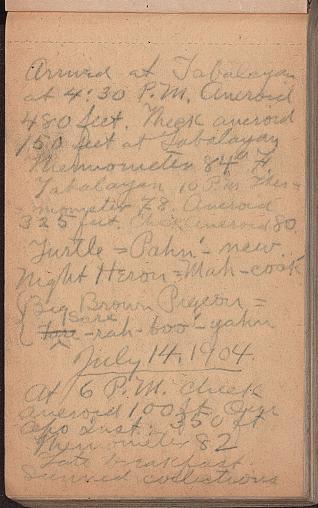 Arrived at Tabalayan
at 4:30 P.M. Aneroid
480 feet. Check aneroid
150 feet at Tabalayan
Thermometer 84° F.
Tabalayan 10 P.M. Ther=
mometer 78. Aneroid
325 feet. Check aneroid 80
Turtle = Pahn'- new.
Night Heron = Mah-cook
Big Brown Pigeon =
sare
-rah-boo'-yahn
July 14, 1904.
At 6 P.M. check
aneroid 100 ft.
inst. 350 ft
Thermometer 82
Late breakfast.
Sunned collections